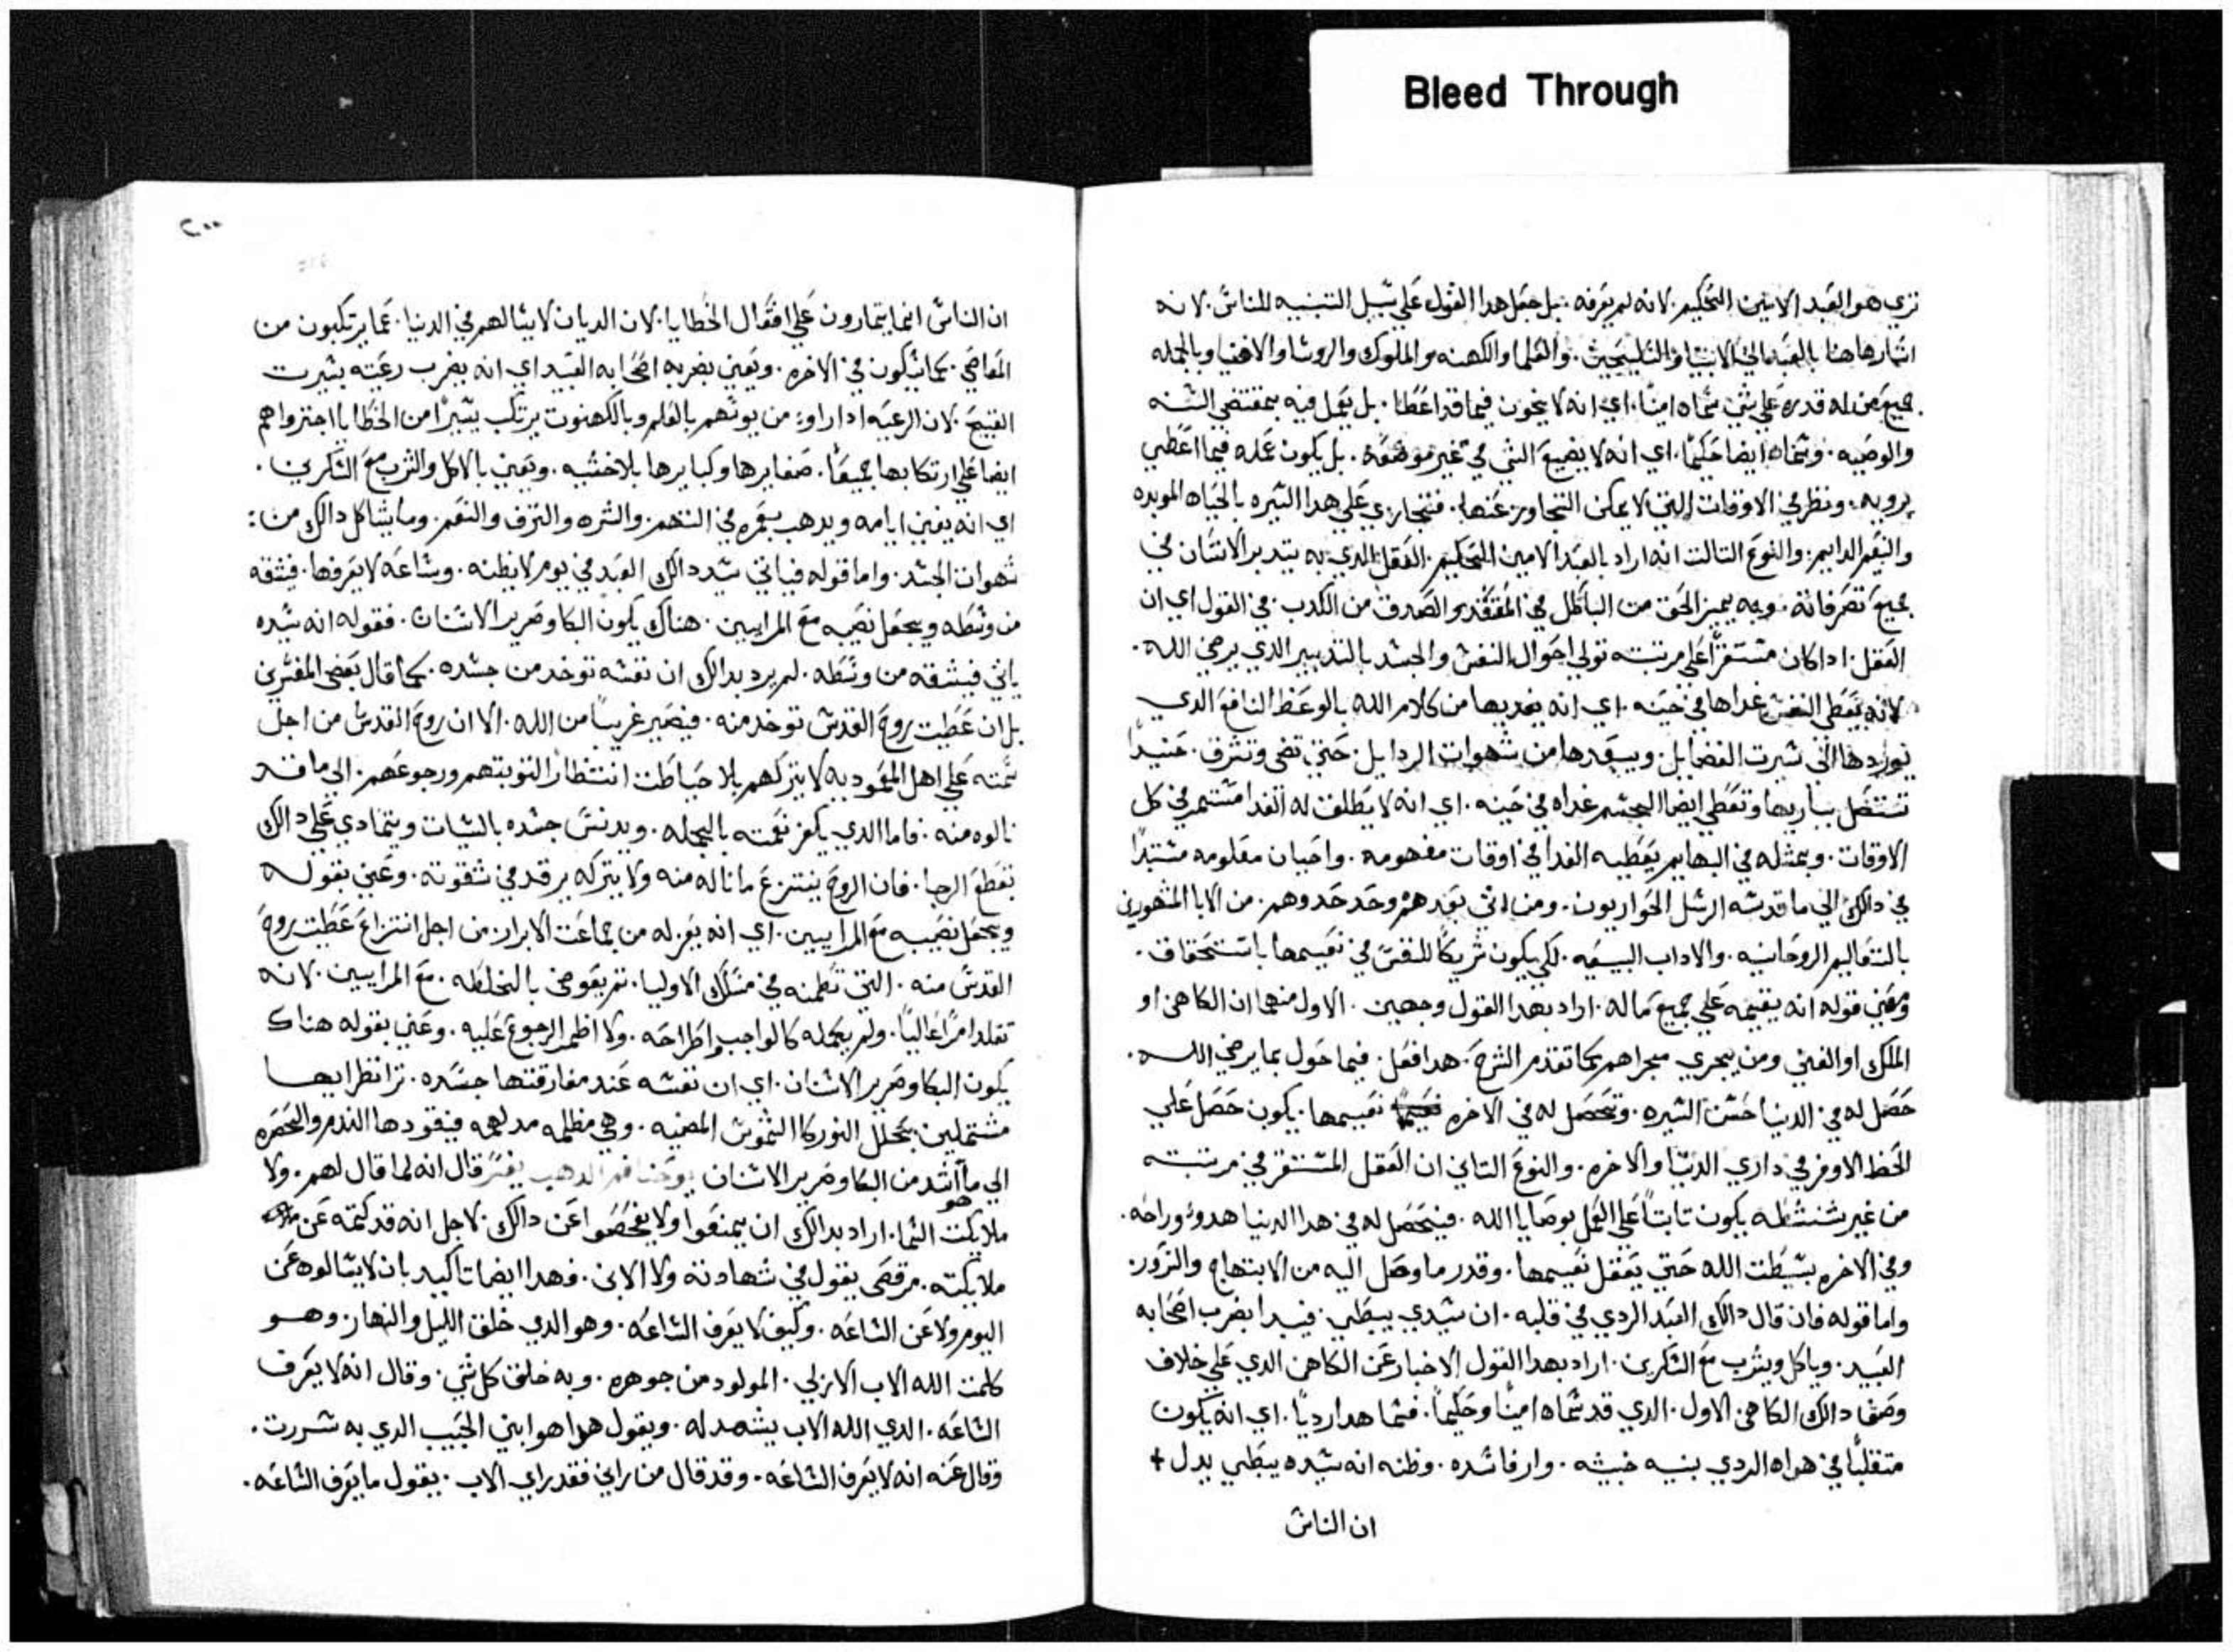 Bleed Through
تري هو العبد الامين الحكيم. لانه لم يعرفه. بل جعل هدا القول علي سبيل التنبيه للناس. لانه
اشار هاهنا بالعبد الي الانبيا والتليمحيين. والعلما والكهنه والملوك والروسا والاغنيا وبالجمله
جميع من له قدره علي شي سماه امينًا. اي انه لا يخون فيما قد اعطا. بل يعمل فيه بمقتضي السنه
والوصيه. وسماه ايضا حكيمًا. اي انه لا يضيع الشي في غير موضعه. بل يكون عمله فيما اعطي
برويه. ونظر في الاوقات التي لا يمكن التجاوز عنها. فتجازي علي هدا السيره بالحياه الموبده
والنعيم الدايم. والنوع التالت انه اراد بالعبد الامين الحكيم. العقل الدي به يتدبر الانسان في
جميع تصرفاته. وبه يميز الحق من الباطل في المعتقد والصدق من الكدب. في القول اي ان
العقل. ادا كان مستقرًا علي مرتبته تولي احوال النفس والجسد بالتدبير الدي يرضي الله.
لانه يعطي النفس غداها في حينه. اي انه يغديها من كلام الله بالوعظ النافع الدي
يوردها الي سيرت الفضايل. ويبعدها من شهوات الردايل. حتي تضي وتشرق. حنيدًا
تستصل بباريها وتعطي ايضا الجسم غداه في حينه. اي انه لا يطلق له الغدا مستمر في كل
الاوقات. وبمثله في البهايم يعطيه الغدا في اوقات مفهومه. واحيان معلومه مستبدًا
في دالك الي ما قدسه الرسل الحواريون. ومن اتي بعدهم وحد حدوهم. من الابا المشهورين
بالتعاليم الروحانيه. والاداب البيعيه. لكي يكون شريكًا للنفس في نعيمها باستحقاق.
ومعني قوله انه يقيمه علي جميع ماله. اراد بهدا القول وجهين. الاول منهما ان الكاهن او
الملك او الغني ومن يجري مجراهم كما تقدم الشرح. هدا فعل. فيما حول بما يرضي الله.
حصل له في الدنيا حسن السيره. وتحصل له في الاخره نعيمها. يكون حصل علي
الحظ الاوفر في داري الدنيا والاخره. والنوع التاني ان العقل المستقر في مرتبته
من غير شنشطه يكون تابتًا علي العمل بوصايا الله. فيتحصل له في هدا الدنيا هدوء وراحه.
وفي الاخره بسيطت الله حتي يعقل نعيمها. وقدر ما وصل اليه من الابتهاج والسرور.
واما قوله فان قال دالك العبد الردي في قلبه. ان سيدي يبطي. فيبدا بضرب اصحابه
العبيد. وياكل ويشرب مع السكرين. اراد بهدا القول الاخبار عن الكاهن الدي علي خلاف
وصف دالك الكاهن الاول. الدي قد سماه امينًا وحكيمًا. فسما هدا رديًا. اي انه يكون
متقلبًا في هواه الردي بنيه خبيثه. وارا فاسده. وظنه انه سيده يبطي يدل +
ان الناس
٢٠٠
ان الناس انما يتمارون علي افتعال الخطايا. لان الديان لا يسالهم في الدنيا. عما يرتكبون من
المعاصي. كما يسالون في الاخره. ويعني بضربه اصحابه العبيد اي انه يضرب رعيته بسيرت
القبيح. لان الرعيه ادا راوء من يوتهم بالعلم وبالكهنوت يرتكب يسيرًا من الخطايا اجتروا هم
ايضا علي ارتكابها جميعًا. صغايرها وكبايرها بلا خشيه. ويعني بالاكل والشرب مع السكرين.
اي انه يفني ايامه ويدهب بعمره في النهم. والشره والترف والنعم. وما يشاكل دالك من:
شهوات الجسد. واما قوله فياتي سيد دالك العبد في يوم لا يظنه. وساعه لا يعرفها. فيشقه
من وسطه ويجعل نصيبه مع المرايين. هناك يكون البكا وصرير الاسنان. فقوله انه سيده
ياتي فيشقه من وسطه. لم يرد بدالك ان نفسه توخد من جسده. كما قال بعض المفسرين
بل ان عطيت روح القدس توخد منه. فيصير غريبًا من الله. الا ان روح القدس من اجل
سمته علي اهل المعموديه لا يتركهم بلا حياطت انتظارًا لتوبتهم ورجوعهم. الي ما قد
نالوه منه. فاما الدي يكفر نعمته بالجمله. ويدنس جسده بالسيات ويتمادي علي دالك
بقطع الرجا. فان الروح ينتزع ما ناله منه ولا يتركه يرقد في شقوته. وعني بقوله
ويجعل نصيبه مع المرايين. اي انه يعزله من جماعت الابرار. من اجل انتزاع عطيت روح
القدس منه. التي تظمنه في مسلك الاوليا. تم يعوض بالخلطه. مع المرايين. لانه
تقلد امرًا عاليًا. ولم يجمله كالواجب واطراحه. ولا اظهر الرجوع عليه. وعني بقوله هناك
يكون البكا وصرير الاسنان. اي ان نفسه عند مفارقتها جسده. ترا نظرايها
مشتملين بحلل النور كالشموس المضيه. وهي مظلمه مدلهمه فيقودها الندم والحصره
الي ما هو اشد من البكا وصرير الاسنان يوحنا فم الدهب يفسر قال انه لما قال لهم. ولا
ملايكت السما. اراد بدالك ان يمنعوا ولا يفحصوا عن دالك. لاجل انه قد كتمه عن
ملايكته. مرقص يقول في شهادته ولا الابن. فهدا ايضا تاكيد بان لا يسالوه عن
اليوم ولا عن الساعه. وكيف لا يعرف الساعه. وهو الدي خلق الليل والنهار. وهو
كلمت الله الاب الازلي. المولود من جوهره. وبه خلق كل شي. وقال انه لا يعرف
الساعه. الدي الله الاب يشهد له. ويقول هدا هو ابني الحبيب الدي به سررت.
وقال عنه انه لا يعرف الساعه. وقد قال من راني فقد راي الاب. يقول ما يعرف الساعه.